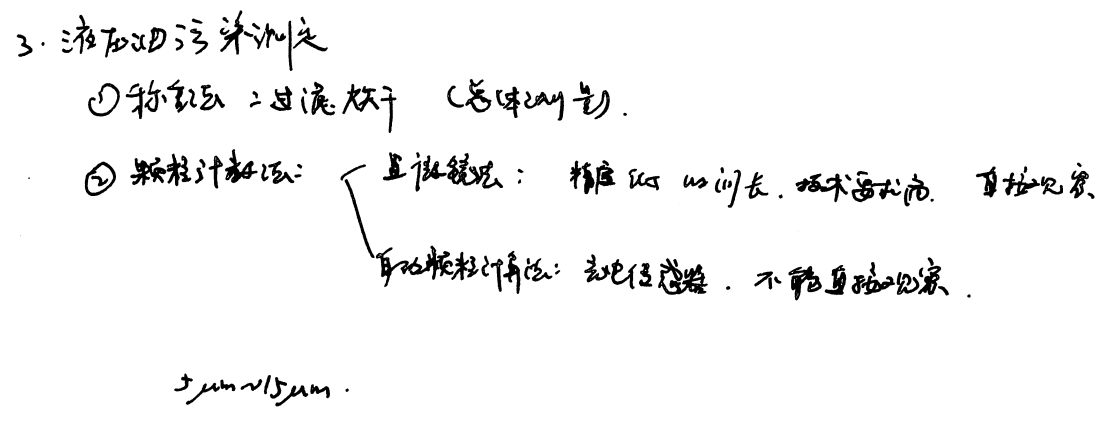 3. 液压油污染测定
① 称重法：过滤烘干（总体测量）.
② 颗粒计数法：
显微镜法：精度低 时间长.技术要求高. 直接观察
自动颗粒计算法：光电传感器.不能直接观察.
5μm~15μm.